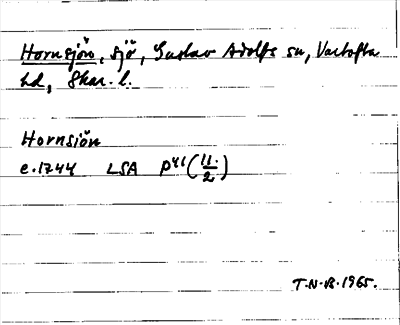 Hornsjön, sjö, Gustav Adolfs sn, Vartofta
hd, Skar. l.
Hornsiön
e. 1744 LSA P41 (11/2)
T-N-B. 1965.